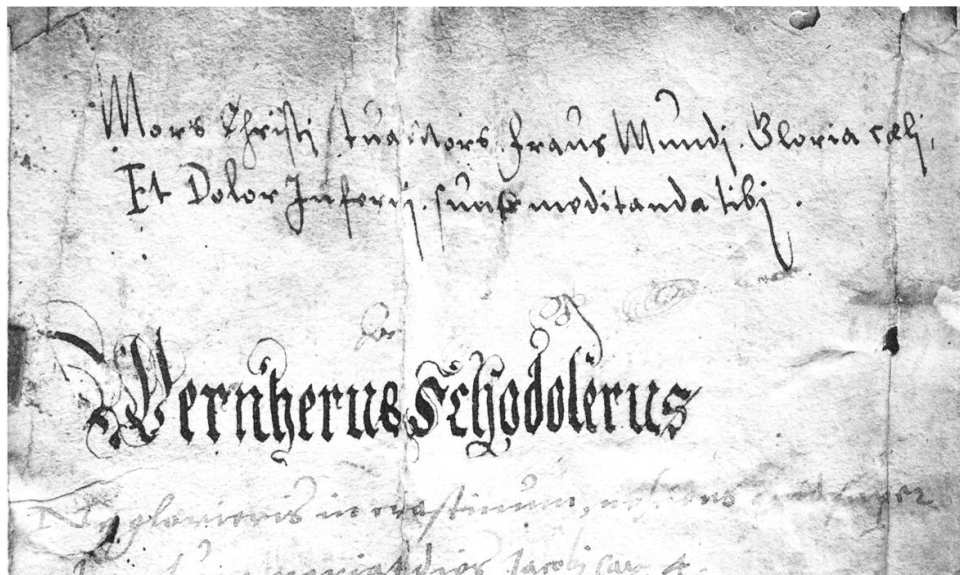 Mors Christi, tua Mors, fraus Mundi, Gloria cælj,
Et Dolor Inferij, sunt meditanda tibj.
Wernherus Schodolerus
Ne glorieris in crastinum,
dies Jacobi Cap. 4.